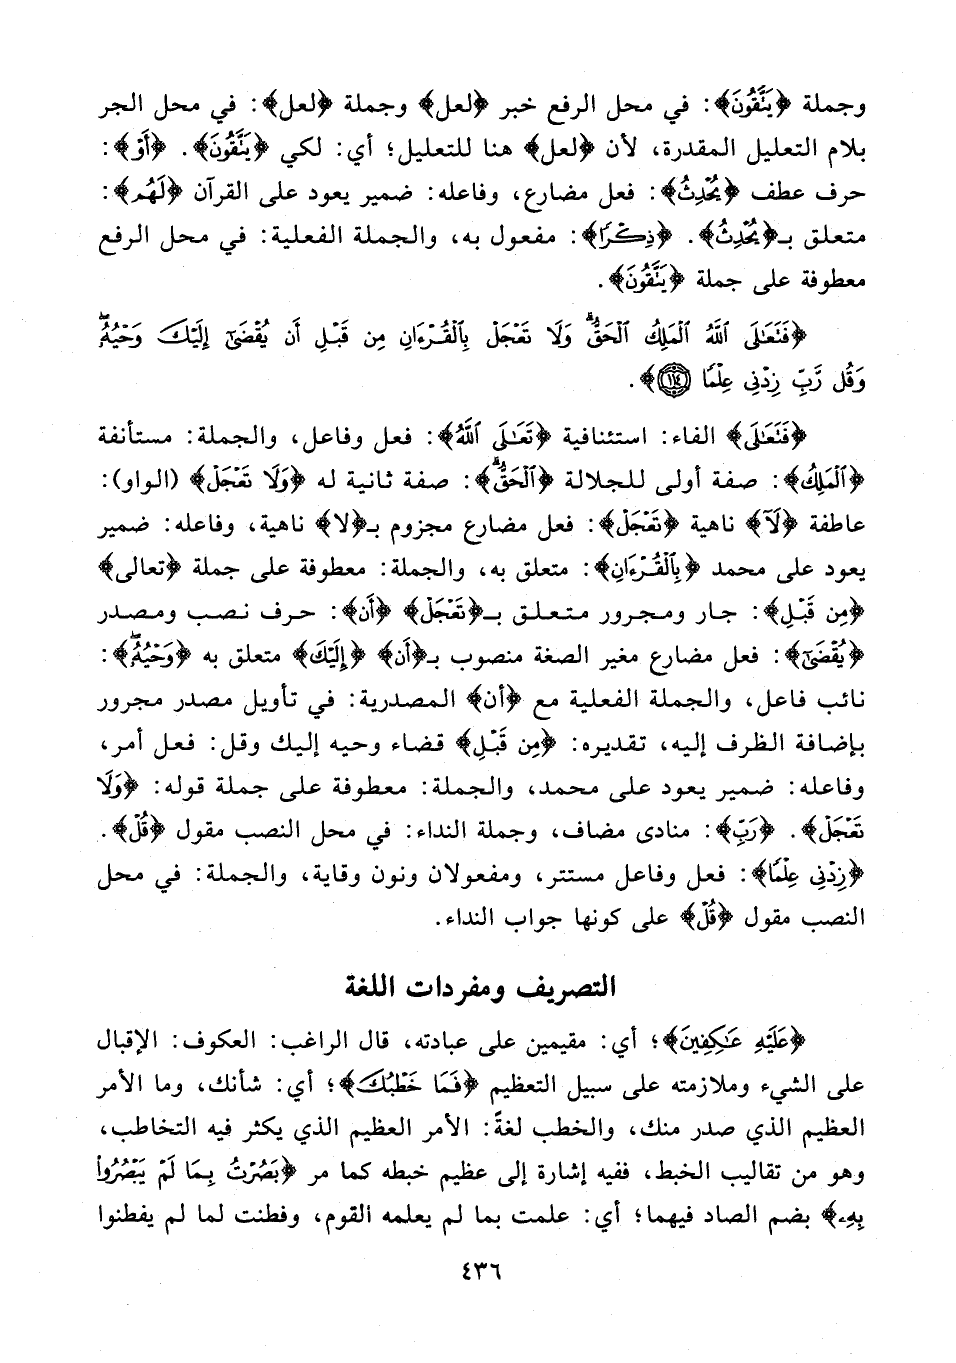 وجملة ﴿يَتَّقُونَ﴾: في محل الرفع خبر ﴿لعل﴾ وجملة ﴿لعل﴾: في محل الجر
بلام التعليل المقدرة، لأن ﴿لعل﴾ هنا للتعليل؛ أي: لكي ﴿يَتَّقُونَ﴾. ﴿أَوْ﴾:
حرف عطف ﴿يُحْدِثُ﴾: فعل مضارع، وفاعله: ضمير يعود على القرآن ﴿لَهُمْ﴾:
متعلق بـ﴿يُحْدِثُ﴾. ﴿ذِكْرًا﴾: مفعول به، والجملة الفعلية: في محل الرفع
معطوفة على جملة ﴿يَتَّقُونَ﴾.
﴿فَتَعَالَى ٱللَّهُ ٱلْمَلِكُ ٱلْحَقُّ ۗ وَلَا تَعْجَلْ بِٱلْقُرْءَانِ مِن قَبْلِ أَن يُقْضَىٰٓ إِلَيْكَ وَحْيُهُۥ ۖ
وَقُل رَّبِّ زِدْنِى عِلْمًا ١١٤﴾.
﴿فَتَعَالَى﴾ الفاء: استئنافية ﴿تَعَالَى ٱللَّهُ﴾: فعل وفاعل، والجملة: مستأنفة
﴿ٱلْمَلِكُ﴾: صفة أولى للجلالة ﴿ٱلْحَقُّ ۗ﴾: صفة ثانية له ﴿وَلَا تَعْجَلْ﴾ (الواو):
عاطفة ﴿لَآ﴾ ناهية ﴿تَعْجَلْ﴾: فعل مضارع مجزوم بـ﴿لا﴾ ناهية، وفاعله: ضمير
يعود على محمد ﴿بِٱلْقُرْءَانِ﴾: متعلق به، والجملة: معطوفة على جملة ﴿تعالى﴾
﴿مِن قَبْلِ﴾: جار ومجرور متعلق بـ﴿تَعْجَلْ﴾ ﴿أَن﴾: حرف نصب ومصدر
﴿يُقْضَىٰٓ﴾: فعل مضارع مغير الصغة منصوب بـ﴿أَن﴾ ﴿إِلَيْكَ﴾ متعلق به ﴿وَحْيُهُۥ ۖ﴾:
نائب فاعل، والجملة الفعلية مع ﴿أن﴾ المصدرية: في تأويل مصدر مجرور
بإضافة الظرف إليه، تقديره: ﴿مِن قَبْلِ﴾ قضاء وحيه إليك وقل: فعل أمر،
وفاعله: ضمير يعود على محمد، والجملة: معطوفة على جملة قوله: ﴿وَلَا
تَعْجَلْ﴾. ﴿رَبِّ﴾: منادى مضاف، وجملة النداء: في محل النصب مقول ﴿قُلْ﴾.
﴿زِدْنِى عِلْمًا﴾: فعل وفاعل مستتر، ومفعولان ونون وقاية، والجملة: في محل
النصب مقول ﴿قُلْ﴾ على كونها جواب النداء.
التصريف ومفردات اللغة
﴿عَلَيْهِ عَٰكِفِينَ﴾؛ أي: مقيمين على عبادته، قال الراغب: العكوف: الإقبال
على الشيء وملازمته على سبيل التعظيم ﴿فَمَا خَطْبُكَ﴾؛ أي: شأنك، وما الأمر
العظيم الذي صدر منك، والخطب لغةً: الأمر العظيم الذي يكثر فيه التخاطب،
وهو من تقاليب الخبط، ففيه إشارة إلى عظيم خبطه كما مر ﴿بَصُرْتُ بِمَا لَمْ يَبْصُرُوا۟
بِهِۦ﴾ بضم الصاد فيهما؛ أي: علمت بما لم يعلمه القوم، وفطنت لما لم يفطنوا
٤٣٦